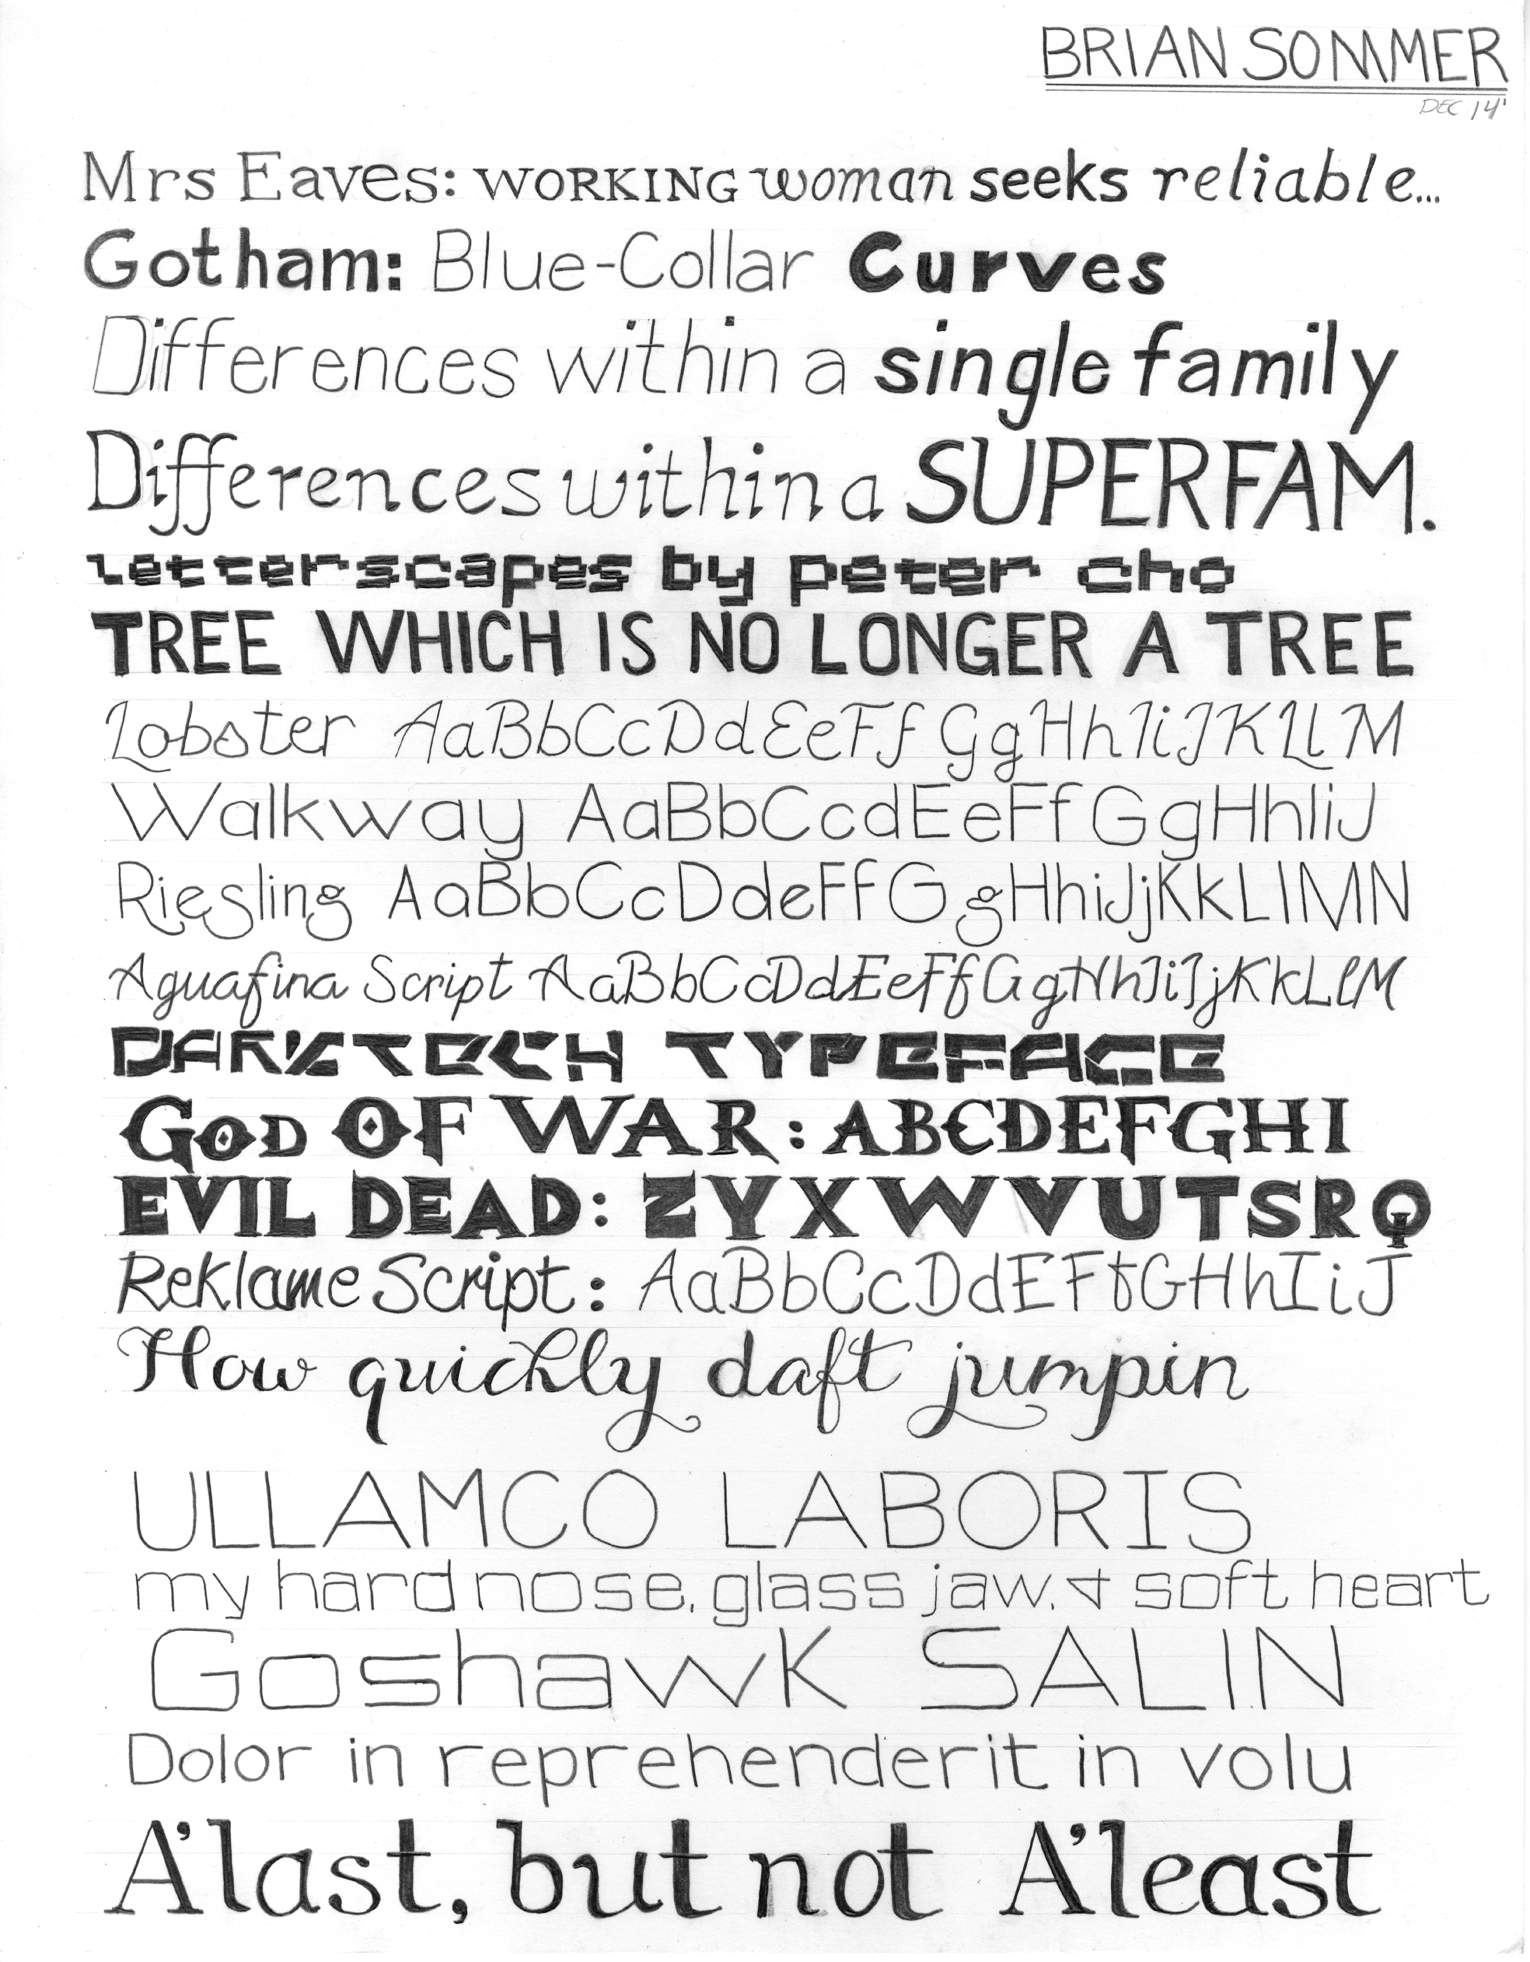 BRIAN SOMMER
DEC 14'
Mrs Eaves: WORKING woman seeks reliable...
Gotham: Blue-Collar Curves
Differences within a single family
Differences within a SUPERFAM.
letterscapes by peter cho
TREE WHICH IS NO LONGER A TREE
Lobster AaBbCcDdEeFfGgHhIiJKLlM
Walkway AaBbCcdEeFfGgHhIiJ
Riesling AaBbCcDdeFfGgHhiJjKkLlMN
Aguafina Script AaBbCcDdEeFfGgHhIiJjKkLlM
DARKTECH TYPEFACE
GOD OF WAR: ABCDEFGHI
EVIL DEAD: ZYXWVUTSRQ
Reklame Script: AaBbCcDdEFfGHhIiJ
How quickly daft jumpin
ULLAMCO LABORIS
my hard nose, glass jaw, & soft heart
Goshawk SALIN
Dolor in reprehenderit in volu
A'last, but not A'least